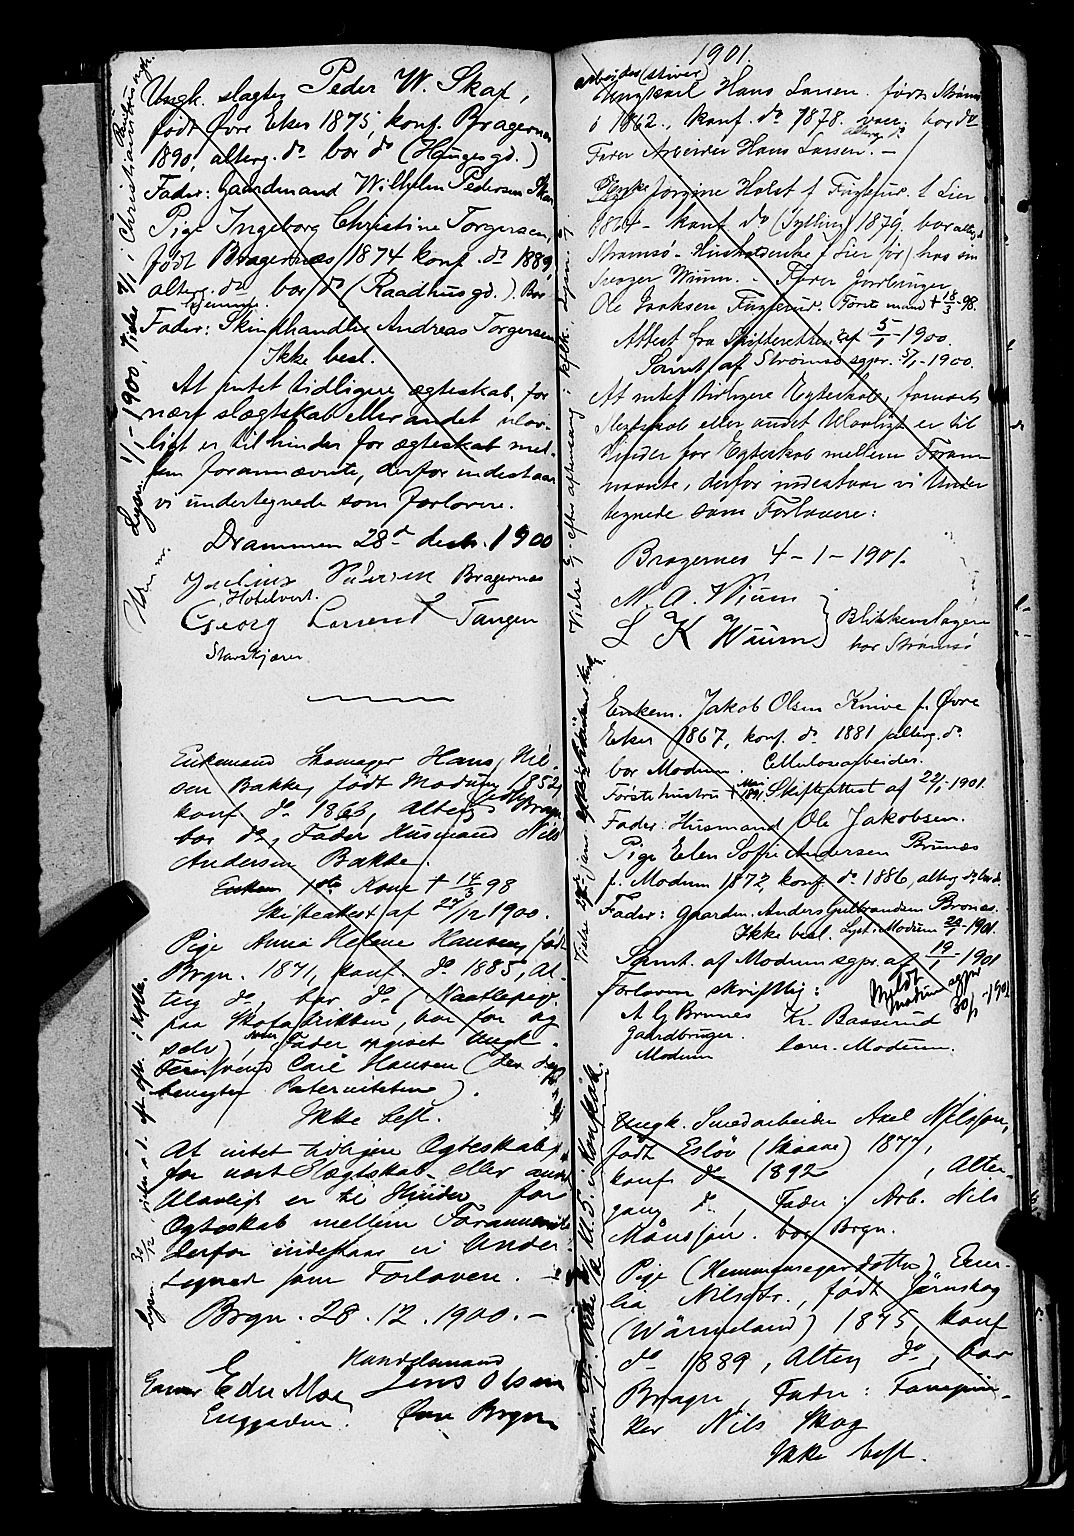 Ungk. slagter Peder W. Skaf,
født Øvre Eker 1875, konf. Bragernes
1890, alterg. do bor do (Haugesgd.)
Fader: Gaardmand Wilhelm Pedersen Skaf
Pige Ingeborg Christine Torgersen,
født Bragernes 1874 konf. do 1889,
alterg. do bor do (Raadhusgd.). Bor
hjemme.
Fader: Skindhandler Andreas Torgersen
Ikke besl.
At intet tidligere ægteskab, for
nært slægtskab eller andet ulov-
ligt er til hinder for ægteskab mel-
lem forannævnte, derfor indestaar
vi undertegnede som forlovere.
Drammen 28de decbr. 1900
Julius Bragernes
Hotelvert.
Georg Tangen
Enkemand Skomager Hans Nil-
sen Bakke, født Modum 1852,
konf. do 1866, alterg. Brgn.
bor do, Fader Husmand Nils
Andersen Bakke.
1ste Kone † 14/3 98
Skifteattest af 27/12 1900.
Pige Anna Helene Hansen, født
Brgn. 1871, konf. do 1885, Al-
terg do, bor do (Naatlepige
paa Skofabrikken, bor for sig
selv) Fader opgivet Ungk.
Carl Hansen (der dog
benegter Paterniteten).
Ikke besl.
At intet tidligere Egteskab,
for nært Slegtskab eller andet
Ulovligt er til Hinder for
Egteskab mellem Forannævnte
derfor indestaar vi Under-
tegnede som Forlovere. —
Brgn. 28. 12. 1900. —
Handelsmand
Eder Moe Jens Olsen
Enggaden. Øvre Brgn.
Lysn. 1/1 - 1900, Viede 7/1 i Christiania
Lysn. 30/12, viet
1901.
arbeider (stuer)
Ungkarl Hans Larsen født Strømsø
i 1862, konf. do 1878. vacc. bor do
alterg. do
Fader Arbeider Hans Larsen. —
Enke Jorgine Holst f. Fuglerud i Lier
1864 - konf do (Sylling) 1879. bor alterg. do
Strømsø - Husholderske (i Lier før) hos sin
Svoger Wium. Fader Jordbruger
Ole Isaksen Fuglerud. Første mand † 18/3 98.
Attest fra Skifteretten af 5/1 1900.
Samt af Strømsø sgpr. 5/1 - 1900.
At intet tidligere Egteskab, for nært
Slegtskab eller andet Ulovligt er til
Hinder for Egteskab mellem Foran-
nævnte, derfor indestaar vi Under-
tegnede som Forlovere:
Bragernes 4 - 1 - 1901.
M. A. Wium
L K Wium } Blikkenslagere
bor Strømsø
Enkem. Jakob Olsen Knive f. Øvre
Eker 1867, konf. do 1881 alterg. do.
bor Modum. Cellulosearbeider.
Første hustru † Mai 1891 Skifteattest af 22/1 - 1901.
Fader: Husmand Ole Jakobsen.
Pige Elen Sofie Andersen Brunæs
f. Modum 1872, konf. do 1886, alterg do, bor do.
Fader: Gaardm. Anders Gulbrandsen Brones.
Ikke besl. Lyst i Modum 20/1 - 1901.
Samt. af Modums sgpr. af 19/1 - 1901
Forlovere skriftlig: Meldt Modum sgpr 30/1 - 1901
A. G Brunes Kr. Baaserud
gaardbruger. lærer. Modum.
Modum
Ungk. Smedarbeider Axel Nilsson,
født Eslöv (Skaane) 1877,
konf. do 1892, Alter-
gang do, Fader: Arb. Nils
Månsson. bor Brgn.
Pige (Hemmansegaredotter) Emi-
lia Nilsdtr., født Järnskog
(Wärmeland) 1875, konf
do 1889, Alterg do, bor
Bragn, Fader:
Nils Skog
Ikke besl.